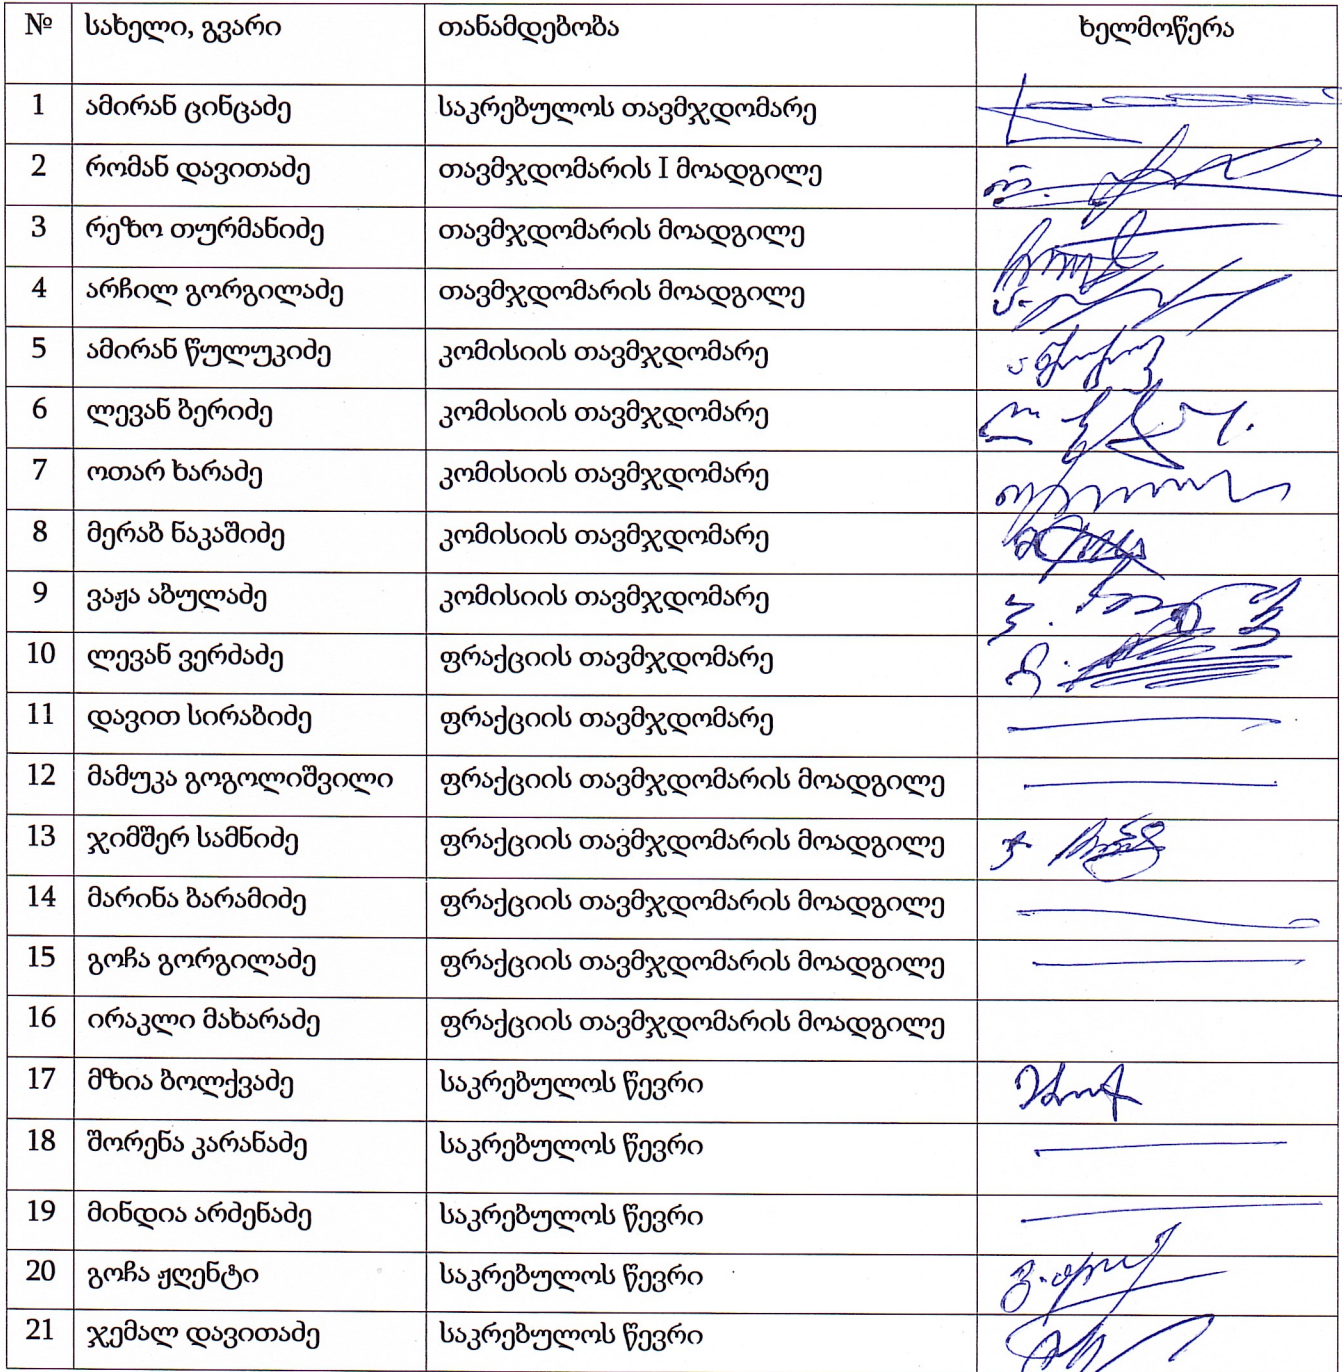 № სახელი, გვარი თანამდებობა ხელმოწერა
1 ამირან ცინცაძე საკრებულოს თავმჯდომარე
2 რომან დავითაძე თავმჯდომარის I მოადგილე
3 რეზო თურმანიძე თავმჯდომარის მოადგილე
4 არჩილ გორგილაძე თავმჯდომარის მოადგილე
5 ამირან წულუკიძე კომისიის თავმჯდომარე
6 ლევან ბერიძე კომისიის თავმჯდომარე
7 ოთარ ხარაძე კომისიის თავმჯდომარე
8 მერაბ ნაკაშიძე კომისიის თავმჯდომარე
9 ვაჟა აბულაძე კომისიის თავმჯდომარე
10 ლევან ვერძაძე ფრაქციის თავმჯდომარე
11 დავით სირაბიძე ფრაქციის თავმჯდომარე
12 მამუკა გოგოლიშვილი ფრაქციის თავმჯდომარის მოადგილე
13 ჯიმშერ სამნიძე ფრაქციის თავმჯდომარის მოადგილე
14 მარინა ბარამიძე ფრაქციის თავმჯდომარის მოადგილე
15 გოჩა გორგილაძე ფრაქციის თავმჯდომარის მოადგილე
16 ირაკლი მახარაძე ფრაქციის თავმჯდომარის მოადგილე
17 მზია ბოლქვაძე საკრებულოს წევრი
18 შორენა კარანაძე საკრებულოს წევრი
19 მინდია არძენაძე საკრებულოს წევრი
20 გოჩა ჟღენტი საკრებულოს წევრი
21 ჯემალ დავითაძე საკრებულოს წევრი